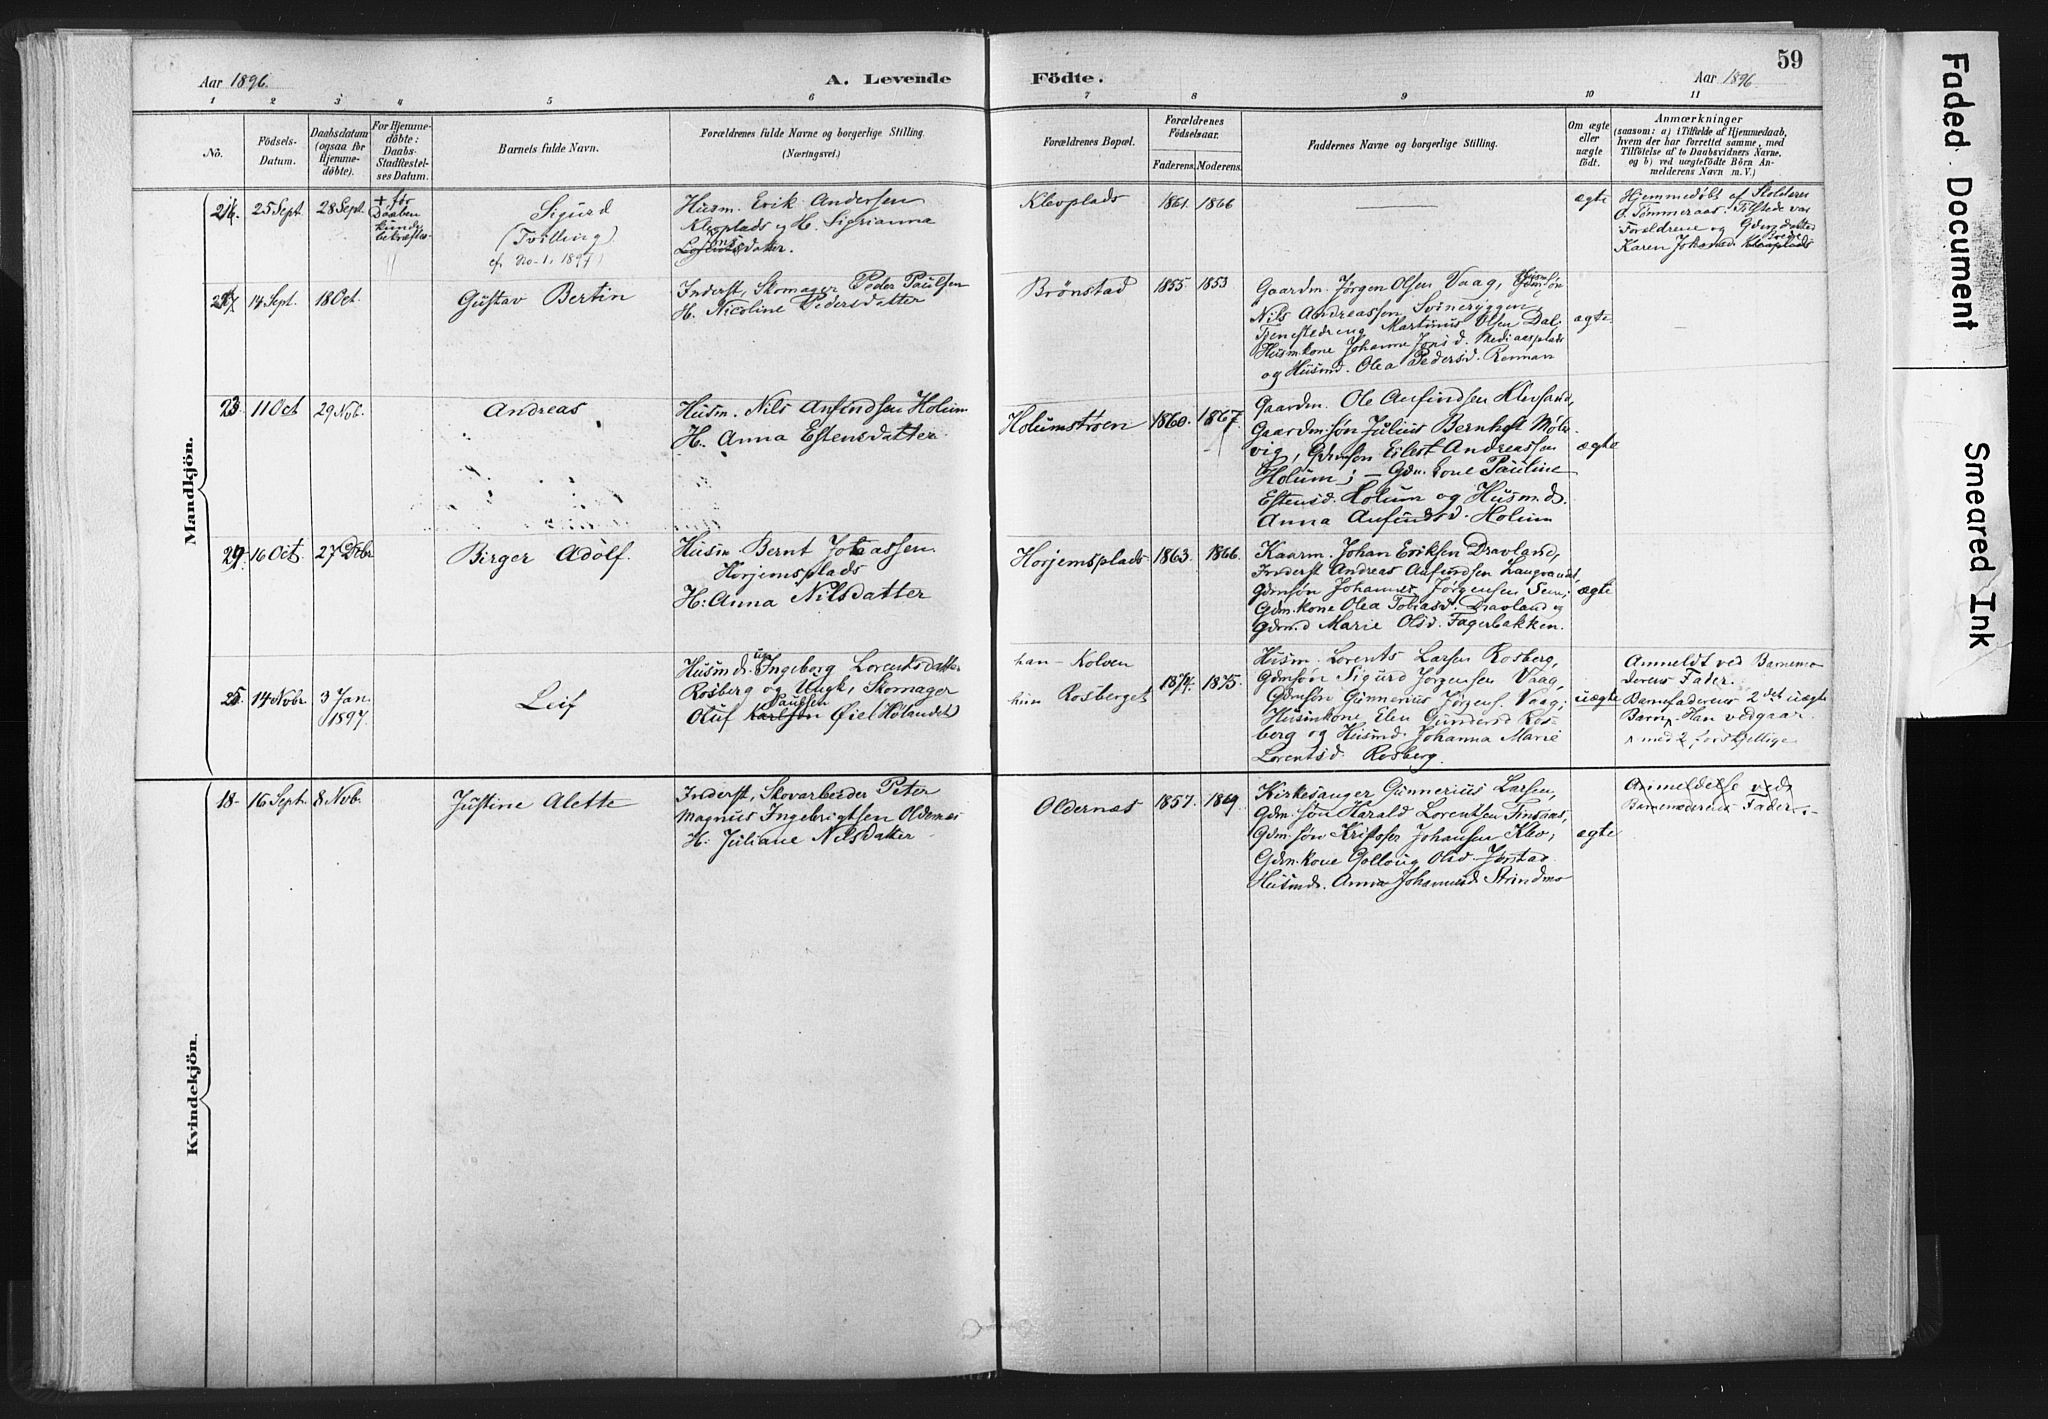 59
Aar 1896.
A. Levende
Födte.
Aar 1896.
1 2 3 4 5 6 7 8 9 10 11
No.
Födsels-
Datum.
Daabsdatum
(ogsaa for
Hjemme-
döbte).
For Hjemme-
döbte:
Daabs-
Stadfæstel-
ses Datum.
Barnets fulde Navn.
Forældrenes fulde Navne og borgerlige Stilling.
(Næringsvei.)
Forældrenes Bopæl.
Forældrenes
Födselsaar.
Faderens. Moderens.
Faddernes Navne og borgerlige Stilling.
Om ægte
eller
uægte
födt.
Anmærkninger
(saasom: a) i Tilfælde af Hjemmedaab,
hvem der har forrettet samme, med
Tilföielse af to Daabsvidners Navne,
og b) ved uægtefödte Börn An-
melderens Navn m. V.)
Mandkjön.
21.
25 Sept.
28 Sept.
+ før
Daaben
kunde
bekræftes
Sigurd
(Tvilling)
cf. No. 1, 1897)
Husm. Erik Andersen
Klevplads og H. Sigrianna
Klevplads
1861. 1866
ægte
Hjemmedøbt af Skolelærer
O. Tømmeraas. Tilstede var
Forældrene og Gdm.datter
Karen Johansd.
14 Sept.
18 Oct.
Gustav Bertin
Inderst, Skomager Peder Paulsen
H. Nicoline Pedersdatter
Brønstad
1855. 1853
Gaardm. Jørgen Olsen Vaag,
Nils Andreassen Svinryggen
Tjenestedreng Martinus Olsen Dal.
Husmkone Johanna Jonsd. Mediaasplads
og Husmd. Olea Pedersd. Rennan
ægte
23
11 Oct
29 Nob.
Andreas
Husm. Nils Anfindsen Holum
H. Anna Estensdatter
Holumstrøen
1860. 1867.
Gaardm. Ole Anfindsen Klevsand,
Gaardm.søn Julius Bernhoft Møls-
vig, Gdmsøn Eilert Andreassen
Holum; – Gdm.kone Pauline
Estensd. Holum og Husm.d.
Anna Anfindsd. Holum
ægte
24
16 Oct.
27 Dcbr.
Birger Adolf.
Husm. Bernt Johassen
Horjemsplads
H: Anna Nilsdatter
Horjemsplads
1863. 1866.
Kaarm. Johan Eriksen Dravland,
Inderst Andreas Anfindsen Langvandet,
Gdmsøn Johannes Jørgensen Sem;
Gdm.kone Olea Tobiasd. Dravland og
Gdm.d Marie Olsd. Fagerbakken.
ægte
25.
14 Nobr.
3 Jan.
1897.
Leif
Husmd: Ingeborg Lorentsdatter
Rosberg og Ungk., Skomager
Paulsen
Oluf Karlsen Øiel (Hølandet)
han – Kolven
hun Rosberget
1874. 1875.
Husm. Lorents Larsen Rosberg,
Gdmsøn Sigurd Jørgensen Vaag,
Gdmsøn Gunnerius Jørgens. Vaag;
Husmkone Elen Gundersd Ros-
berg og Husmd. Johanna Marie
Lorentsd. Rosberg.
uægte
Anmeldt ved Barnemo-
derens Fader.
Barnefaderens 2det uægte
Barn, Han vedgaar.
^ med 2 forskjellige
Kvindekjön.
18-
16 Sept.
8 Nob.
Justine Alette
Inderst, Skovarbeider Peter
Magnus Ingebrigtsen Oldernæs
H. Juliane Nilsdatter
Oldernæs
1857. 1869.
Kirkesanger Gunnerius Larsen,
Gdm.søn Harald Lorentsen Finsaas,
Gdm.søn Kristofer Johansen Klev;
Gdm.kone Gollaug Olsd. Jørstad
Husmd. Anna Johannesd. Strindmo
ægte
Anmeldelse ved
Barnemoderens Fader.
Faded Document
Smeared Ink